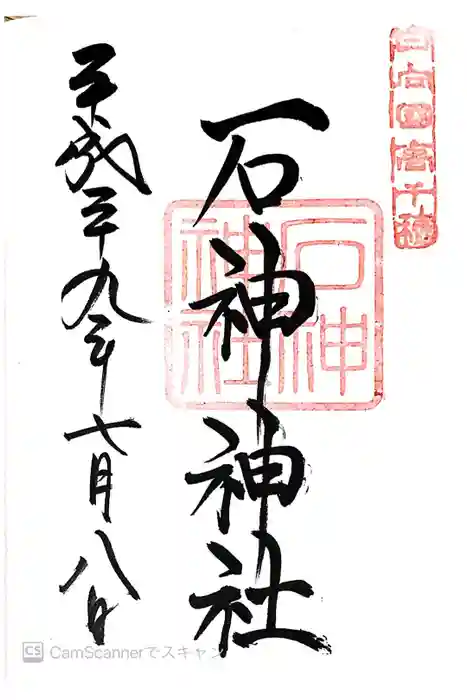 日向国高千穂
石神神社
石神
神社
平成二十九年七月八日
CS CamScannerでスキャン